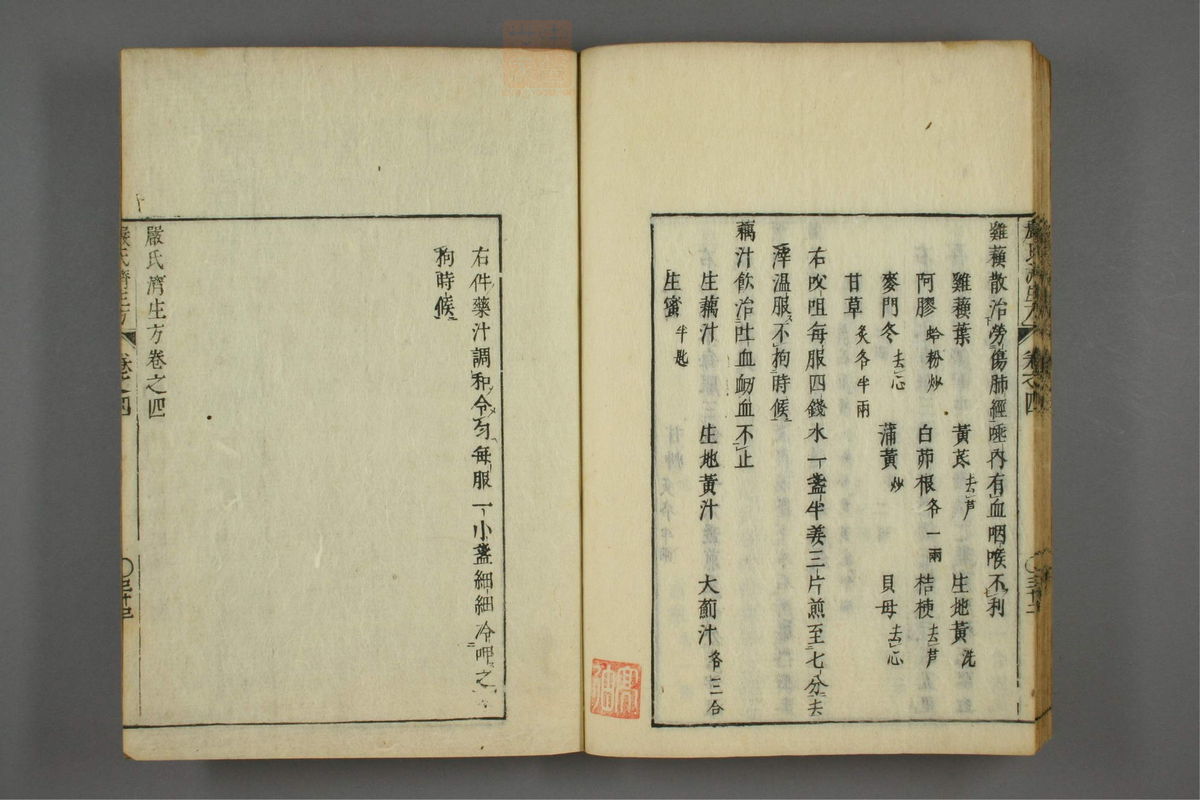 雞蘓散治勞傷肺經唾內有血咽喉不利
雞蘓葉 黃芪去芦 生地黃洗
阿膠蛤粉炒 白茆根各一兩 桔梗去芦
麥門冬去心 蒲黃炒 貝母去心
甘草炙各半兩
右㕮咀每服四錢水一盞半姜三片煎至七分去
滓温服不拘時候
藕汁飲治吐血衂血不止
生藕汁 生地黃汁 大薊汁各三合
生蜜半匙
右件藥汁調和令勻每服一小盞細細冷呷之不
拘時候
嚴氏濟生方卷之四
嚴氏濟生方 卷之四 三十三